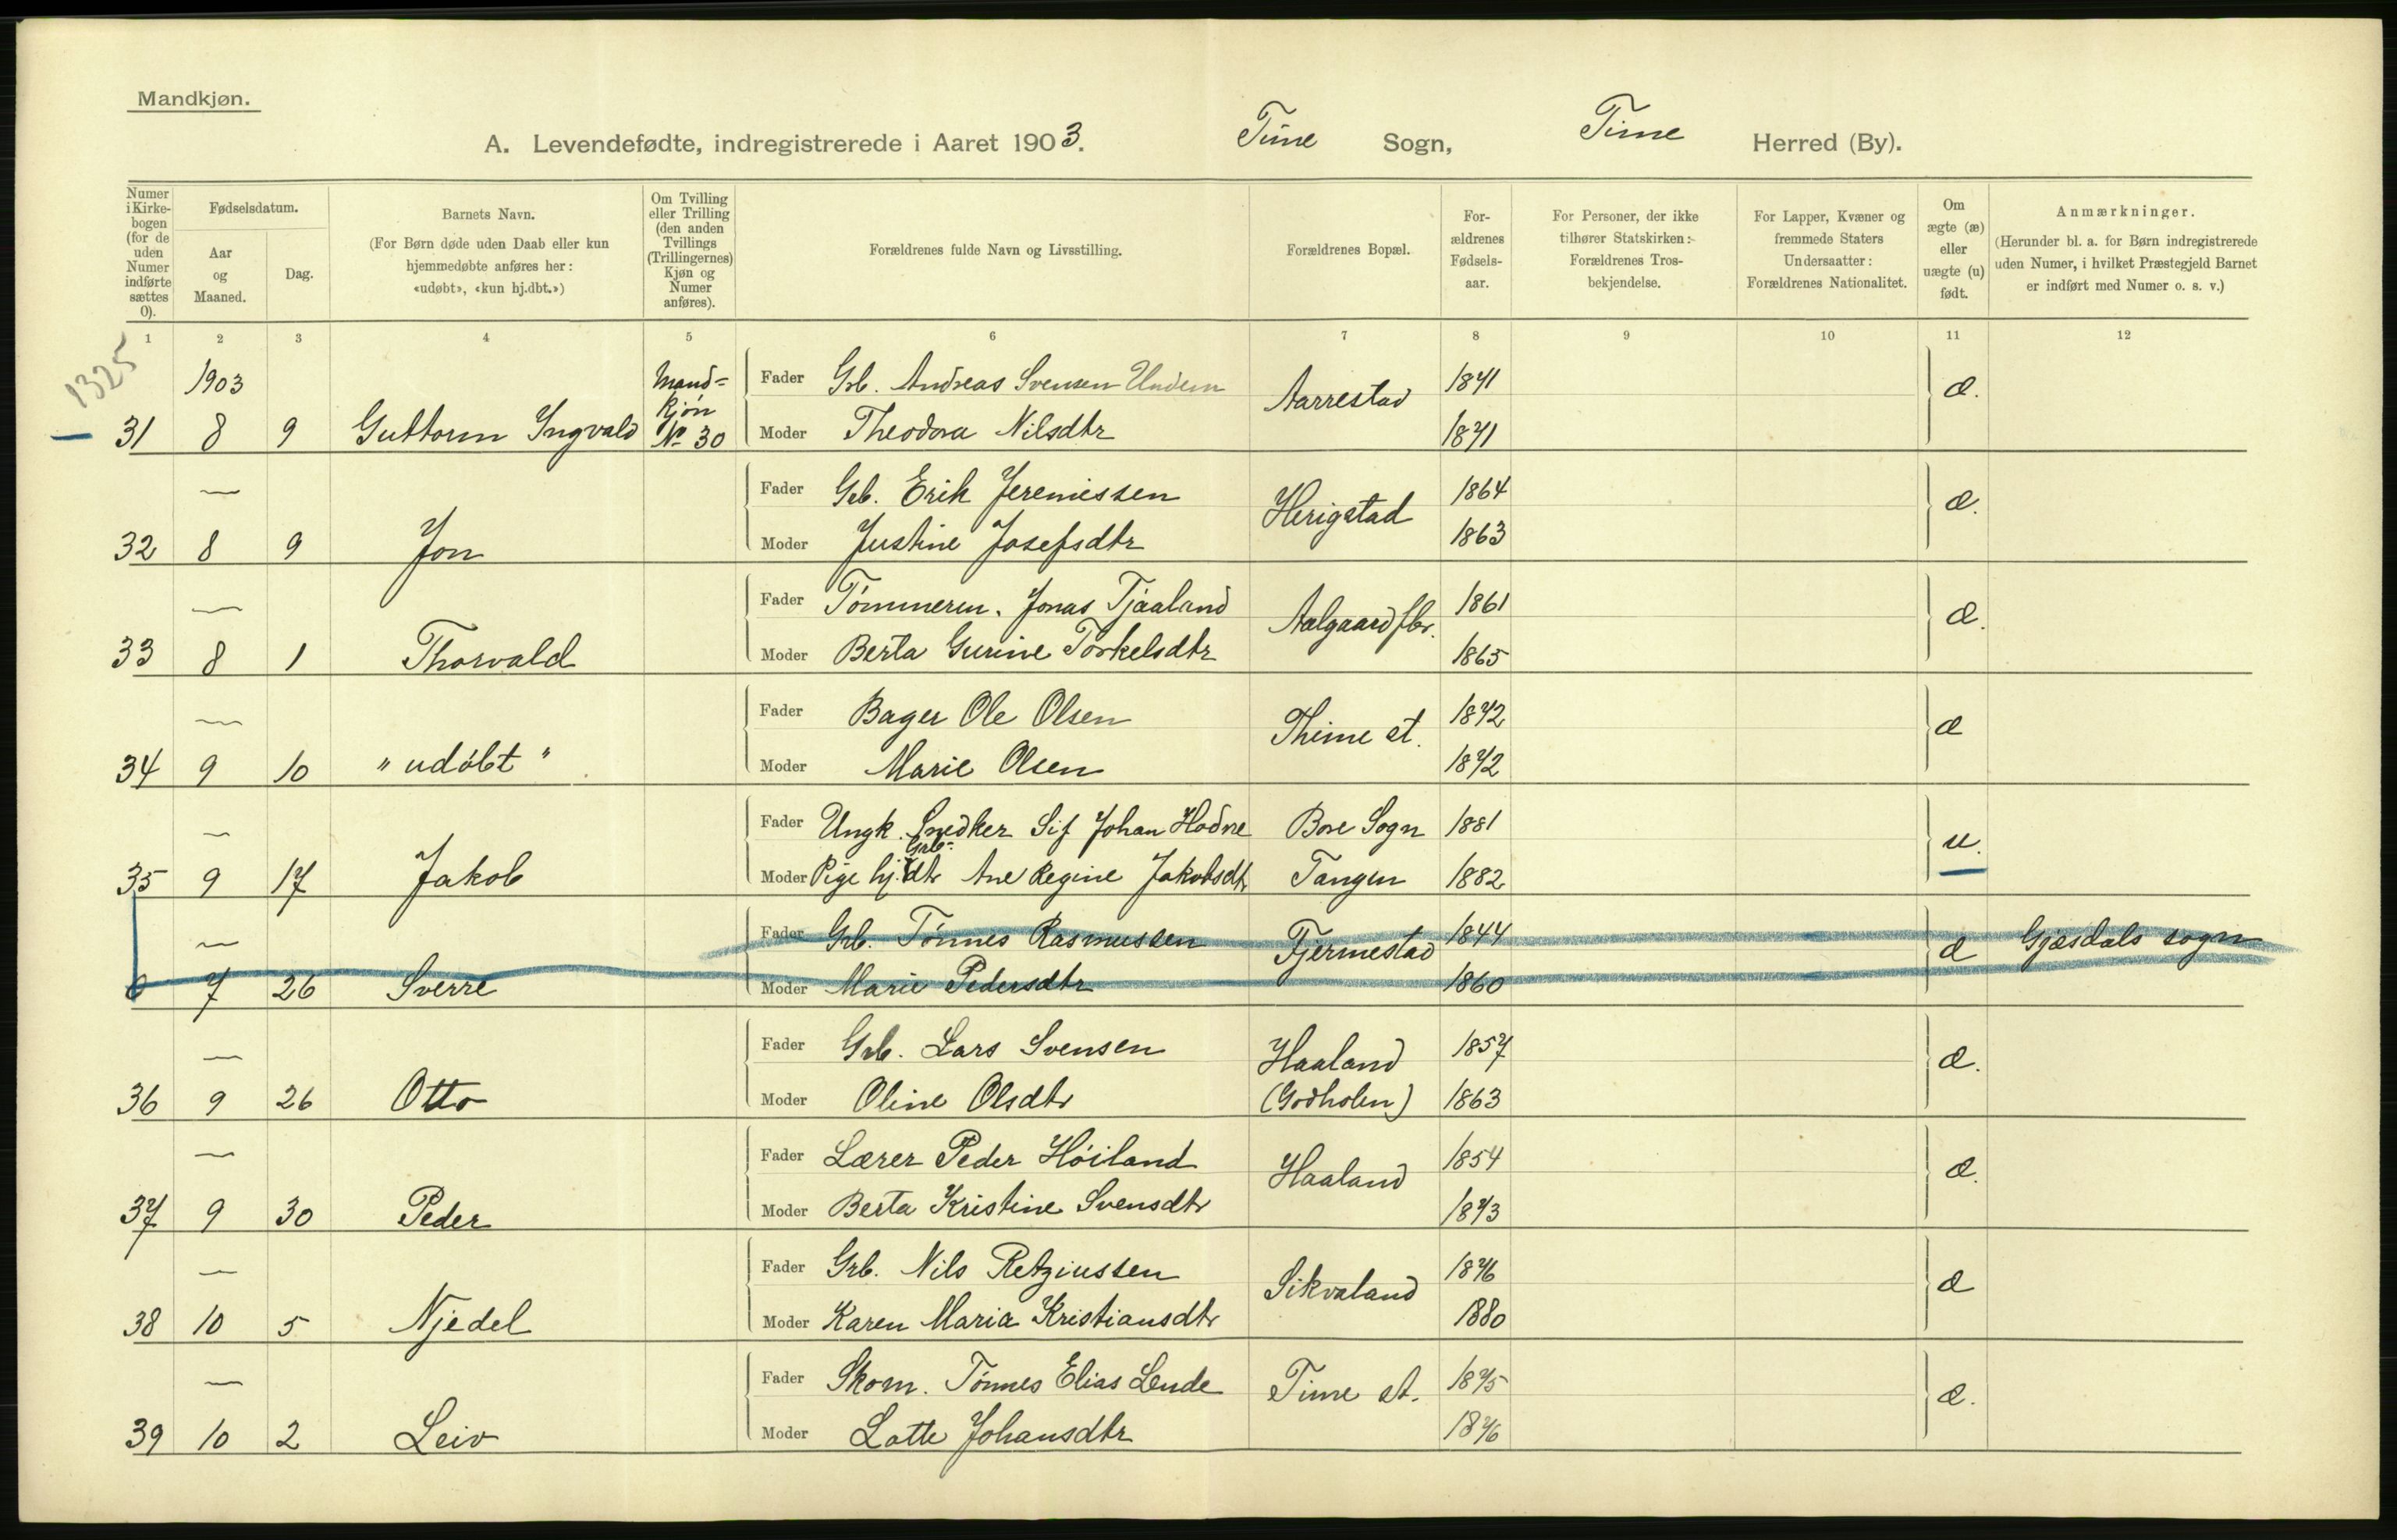 Mandkjøn.
A. Levendefødte, indregistrerede i Aaret 1903. Time Sogn, Time Herred (By).
Numer i Kirkebogen (for de uden Numer indførte sættes 0).
Fødselsdatum.
Aar og Maaned.
Dag.
Barnets Navn.
(For Børn døde uden Daab eller kun hjemmedøbte anføres her: «udøbt», «kun hj.dbt.»)
Om Tvilling eller Trilling (den anden Tvillings (Trillingernes) Kjøn og Numer anføres).
Forældrenes fulde Navn og Livsstilling.
Forældrenes Bopæl.
Forældrenes Fødselsaar.
For Personer, der ikke tilhører Statskirken: Forældrenes Trosbekjendelse.
For Lapper, Kvæner og fremmede Staters Undersaatter: Forældrenes Nationalitet.
Om ægte (æ) eller uægte (u) født.
Anmærkninger.
(Herunder bl. a. for Børn indregistrerede uden Numer, i hvilket Præstegjeld Barnet er indført med Numer o. s. v.)
1 2 3 4 5 6 7 8 9 10 11 12
1325
1903 Mand= Fader Grb. Andreas Svensen Undem Aarrestad 1871 æ.
kjøn
31 8 9 Guttorm Ingvald No 30 Moder Theodora Nilsdtr 1871
— Fader Grb. Erik Jeremiessen Herigstad 1864 æ.
32 8 9 Jon Moder Justine Josefsdtr 1863
— Fader Tømmerm. Jonas Tjaaland Aalgaard fbr. 1861 æ.
33 8 1 Thorvald Moder Berta Gurine Torkelsdtr 1865
— Fader Bager Ole Olsen Thime st. 1872 æ
34 9 10 "udøbt" Moder Marie Olsen 1872
— Fader Ungk. Snedker Sif Johan Hodne Bore Sogn 1881 u.
Grb=
35 9 17 Jakob Moder Pige hj. dtr Ane Regine Jakobsdtr Tangen 1882
— Fader Grb. Tønnes Rasmussen Fjermestad 1844 æ Gjæsdals sogn
0 7 26 Sverre Moder Marie Pedersdtr 1860
— Fader Grb. Lars Svensen Haaland 1857 æ.
36 9 26 Otto Moder Oline Olsdtr (Godholen) 1863
— Fader Lærer Peder Høiland Haaland 1854 æ.
37 9 30 Peder Moder Berta Kristine Svensdtr 1873
— Fader Grb. Nils Retziussen Sikvaland 1876 æ
38 10 5 Njedel Moder Karen Maria Kristiansdtr 1880
— Fader Skom. Tønnes Elias Lende Time st. 1875 æ.
39 10 2 Leiv Moder Lotte Johansdtr 1876